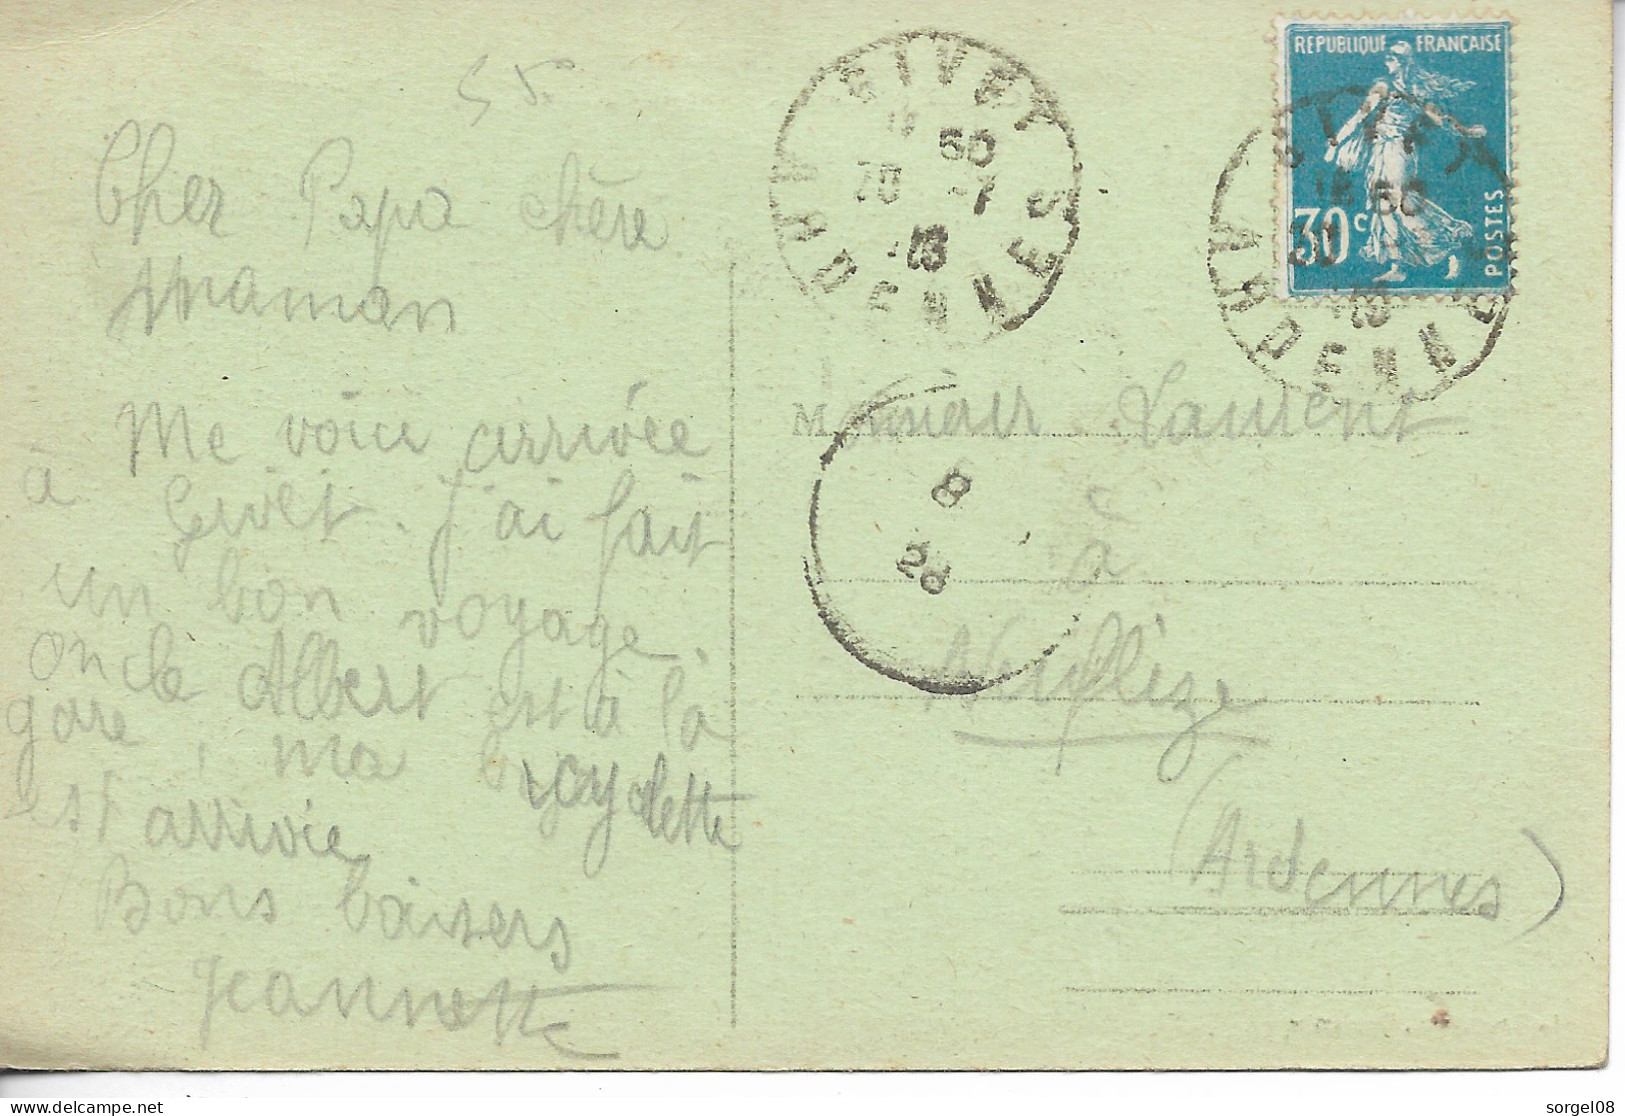 55
Cher Papa chère
Maman
Me voici arrivée
à Givet. J'ai fait
un bon voyage
oncle Albert est à la
gare, ma bicyclette
est arrivée
Bons baisers
Jeannette
GIVET
50
ARDENNES
REPUBLIQUE FRANÇAISE
30c
POSTES
GIVET
50
ARDENNES
M Laurent
à
Neuflize
(Ardennes)
8
sorgel08